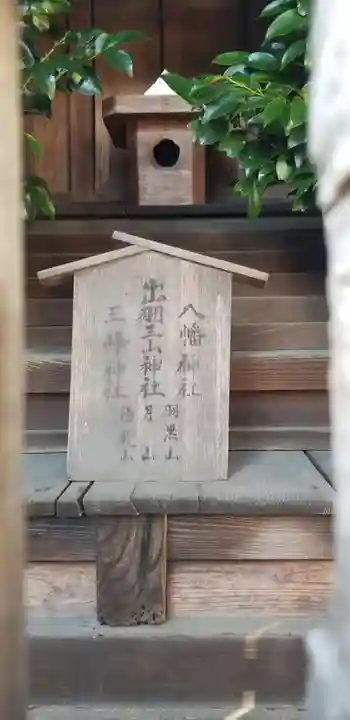 八幡神社
出羽三山神社 羽黒山 月山 湯殿山
三峰神社